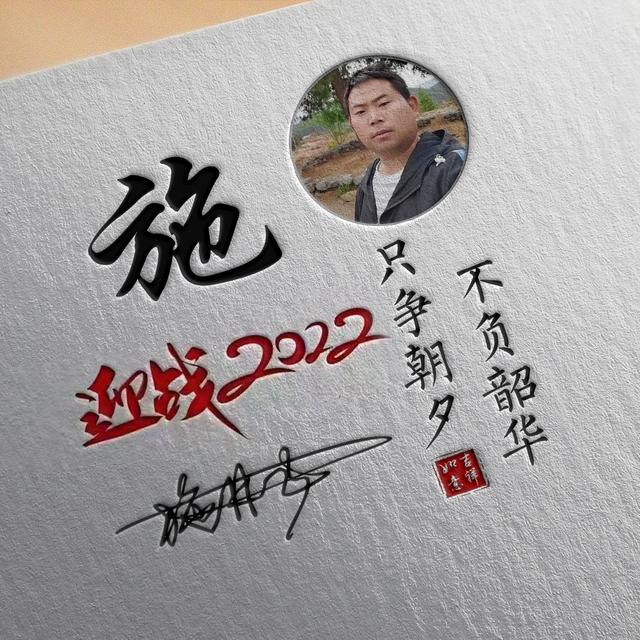 施
迎战2022
只争朝夕
不负韶华
吉祥
如意